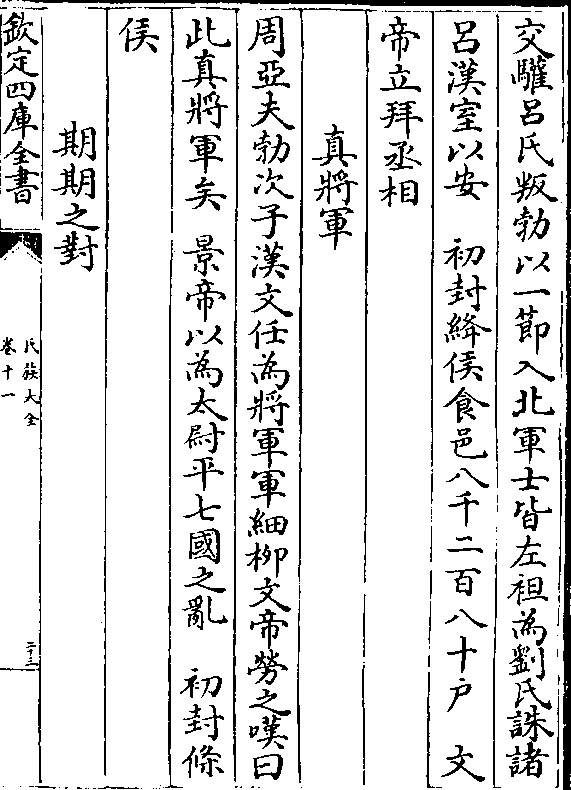 交驩呂氏叛勃以一節入北軍士皆左袒為劉氏誅諸
呂漢室以安　初封絳侯食邑八千二百八十戶　文
帝立拜丞相
真將軍
周亞夫勃次子漢文任為將軍軍細柳文帝勞之嘆曰
此真將軍矣　景帝以為太尉平七國之亂　初封條
侯
期期之對
欽定四庫全書
氏族大全
卷十一
二十三